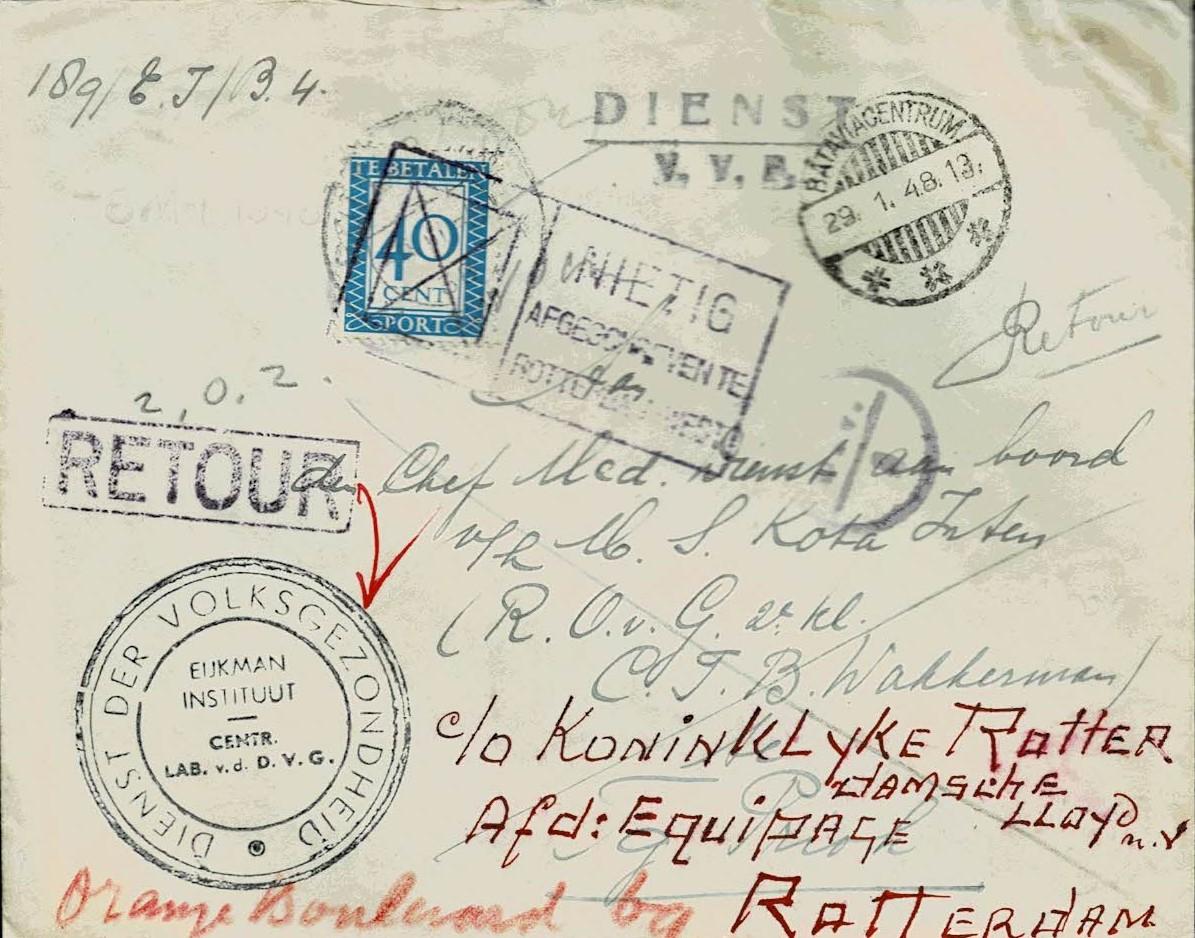 189/E.J/B.4.
DIENST
V. V. B.
BATAVIACENTRUM
29. 1. 48. 13.
TE BETALEN
40
CENT
PORT
NIETIG
AFGESCHREVEN TE
ROTTERDAM WEST
Retour
2.0.2.
RETOUR
Aan
den Chef Med. Dienst aan boord
v/h M. S. Kota Inten
(R. O. v. G. 2e kl.
C. J. B. Wakkerman)
DIENST DER VOLKSGEZONDHEID
EIJKMAN
INSTITUUT
CENTR.
LAB. v. d. D. V. G.
c/o KONINKLYKE ROTTER
DAMSCHE
LLOYD n.v
Afd: EQUIPAGE
Oranje Boulevard by ROTTERDAM